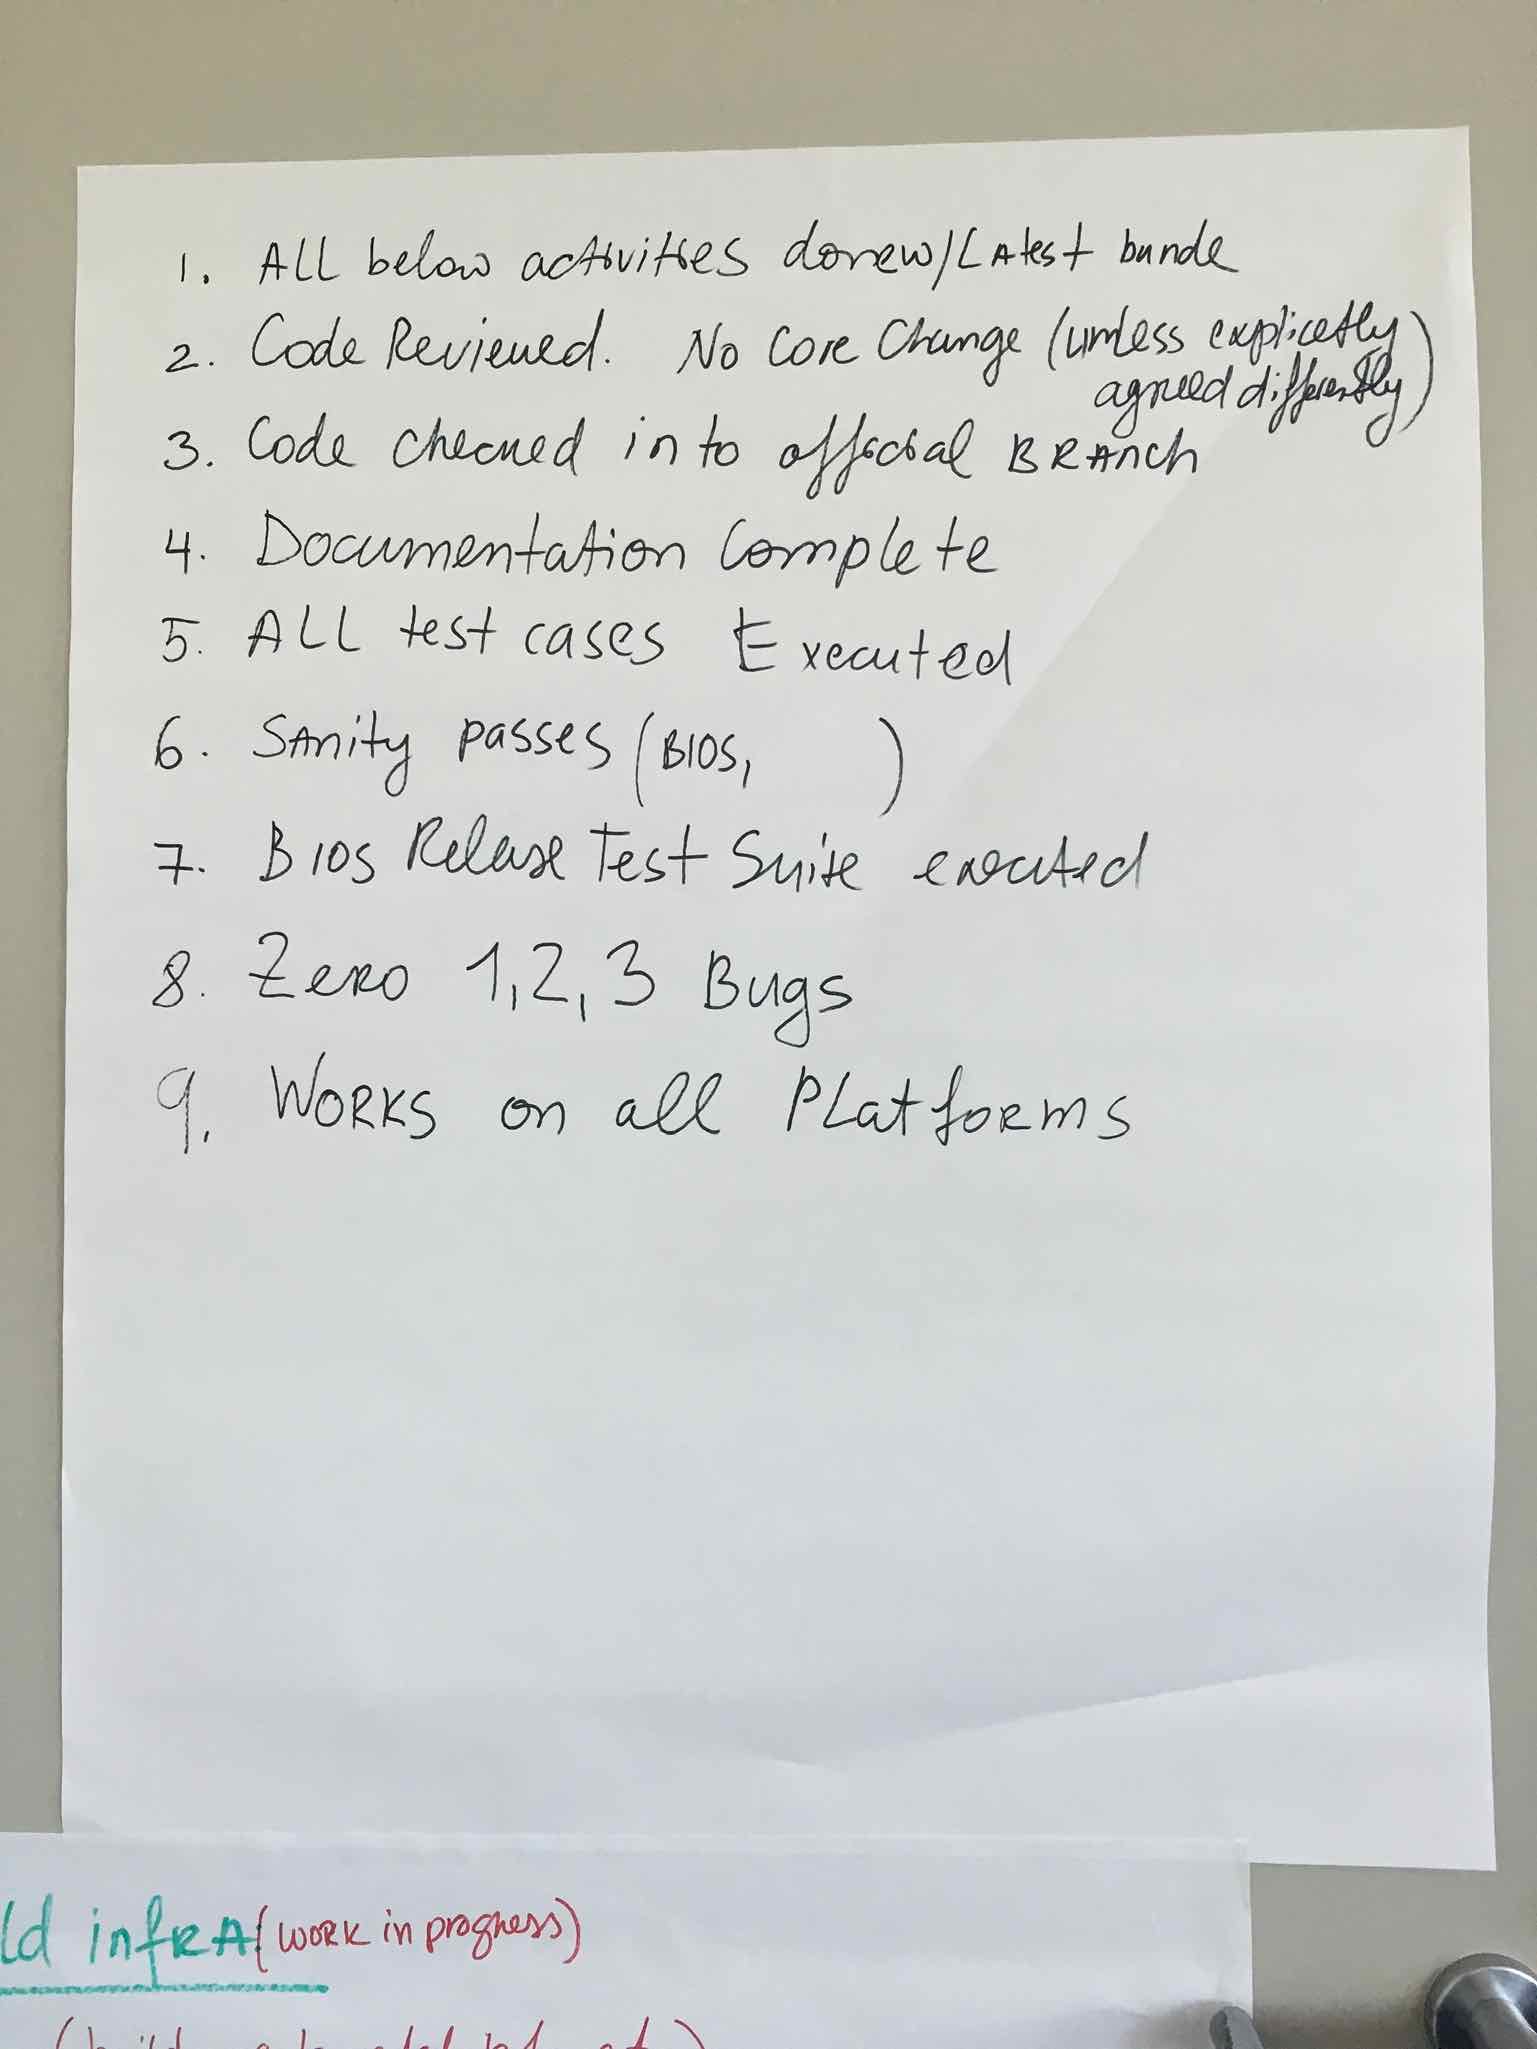 1. ALL below activities done w/ LAtest bunde
2. Code Reviewed. No Core Change (unless explicetly
agreed differently)
3. Code checked in to official BRAnch
4. Documentation Complete
5. ALL test cases Executed
6. SAnity passes (BIOS, )
7. BIOS Relase Test Suite executed
8. Zero 1,2,3 Bugs
9. WORKS on all PLatforms
ld infRA (WORK in progress)